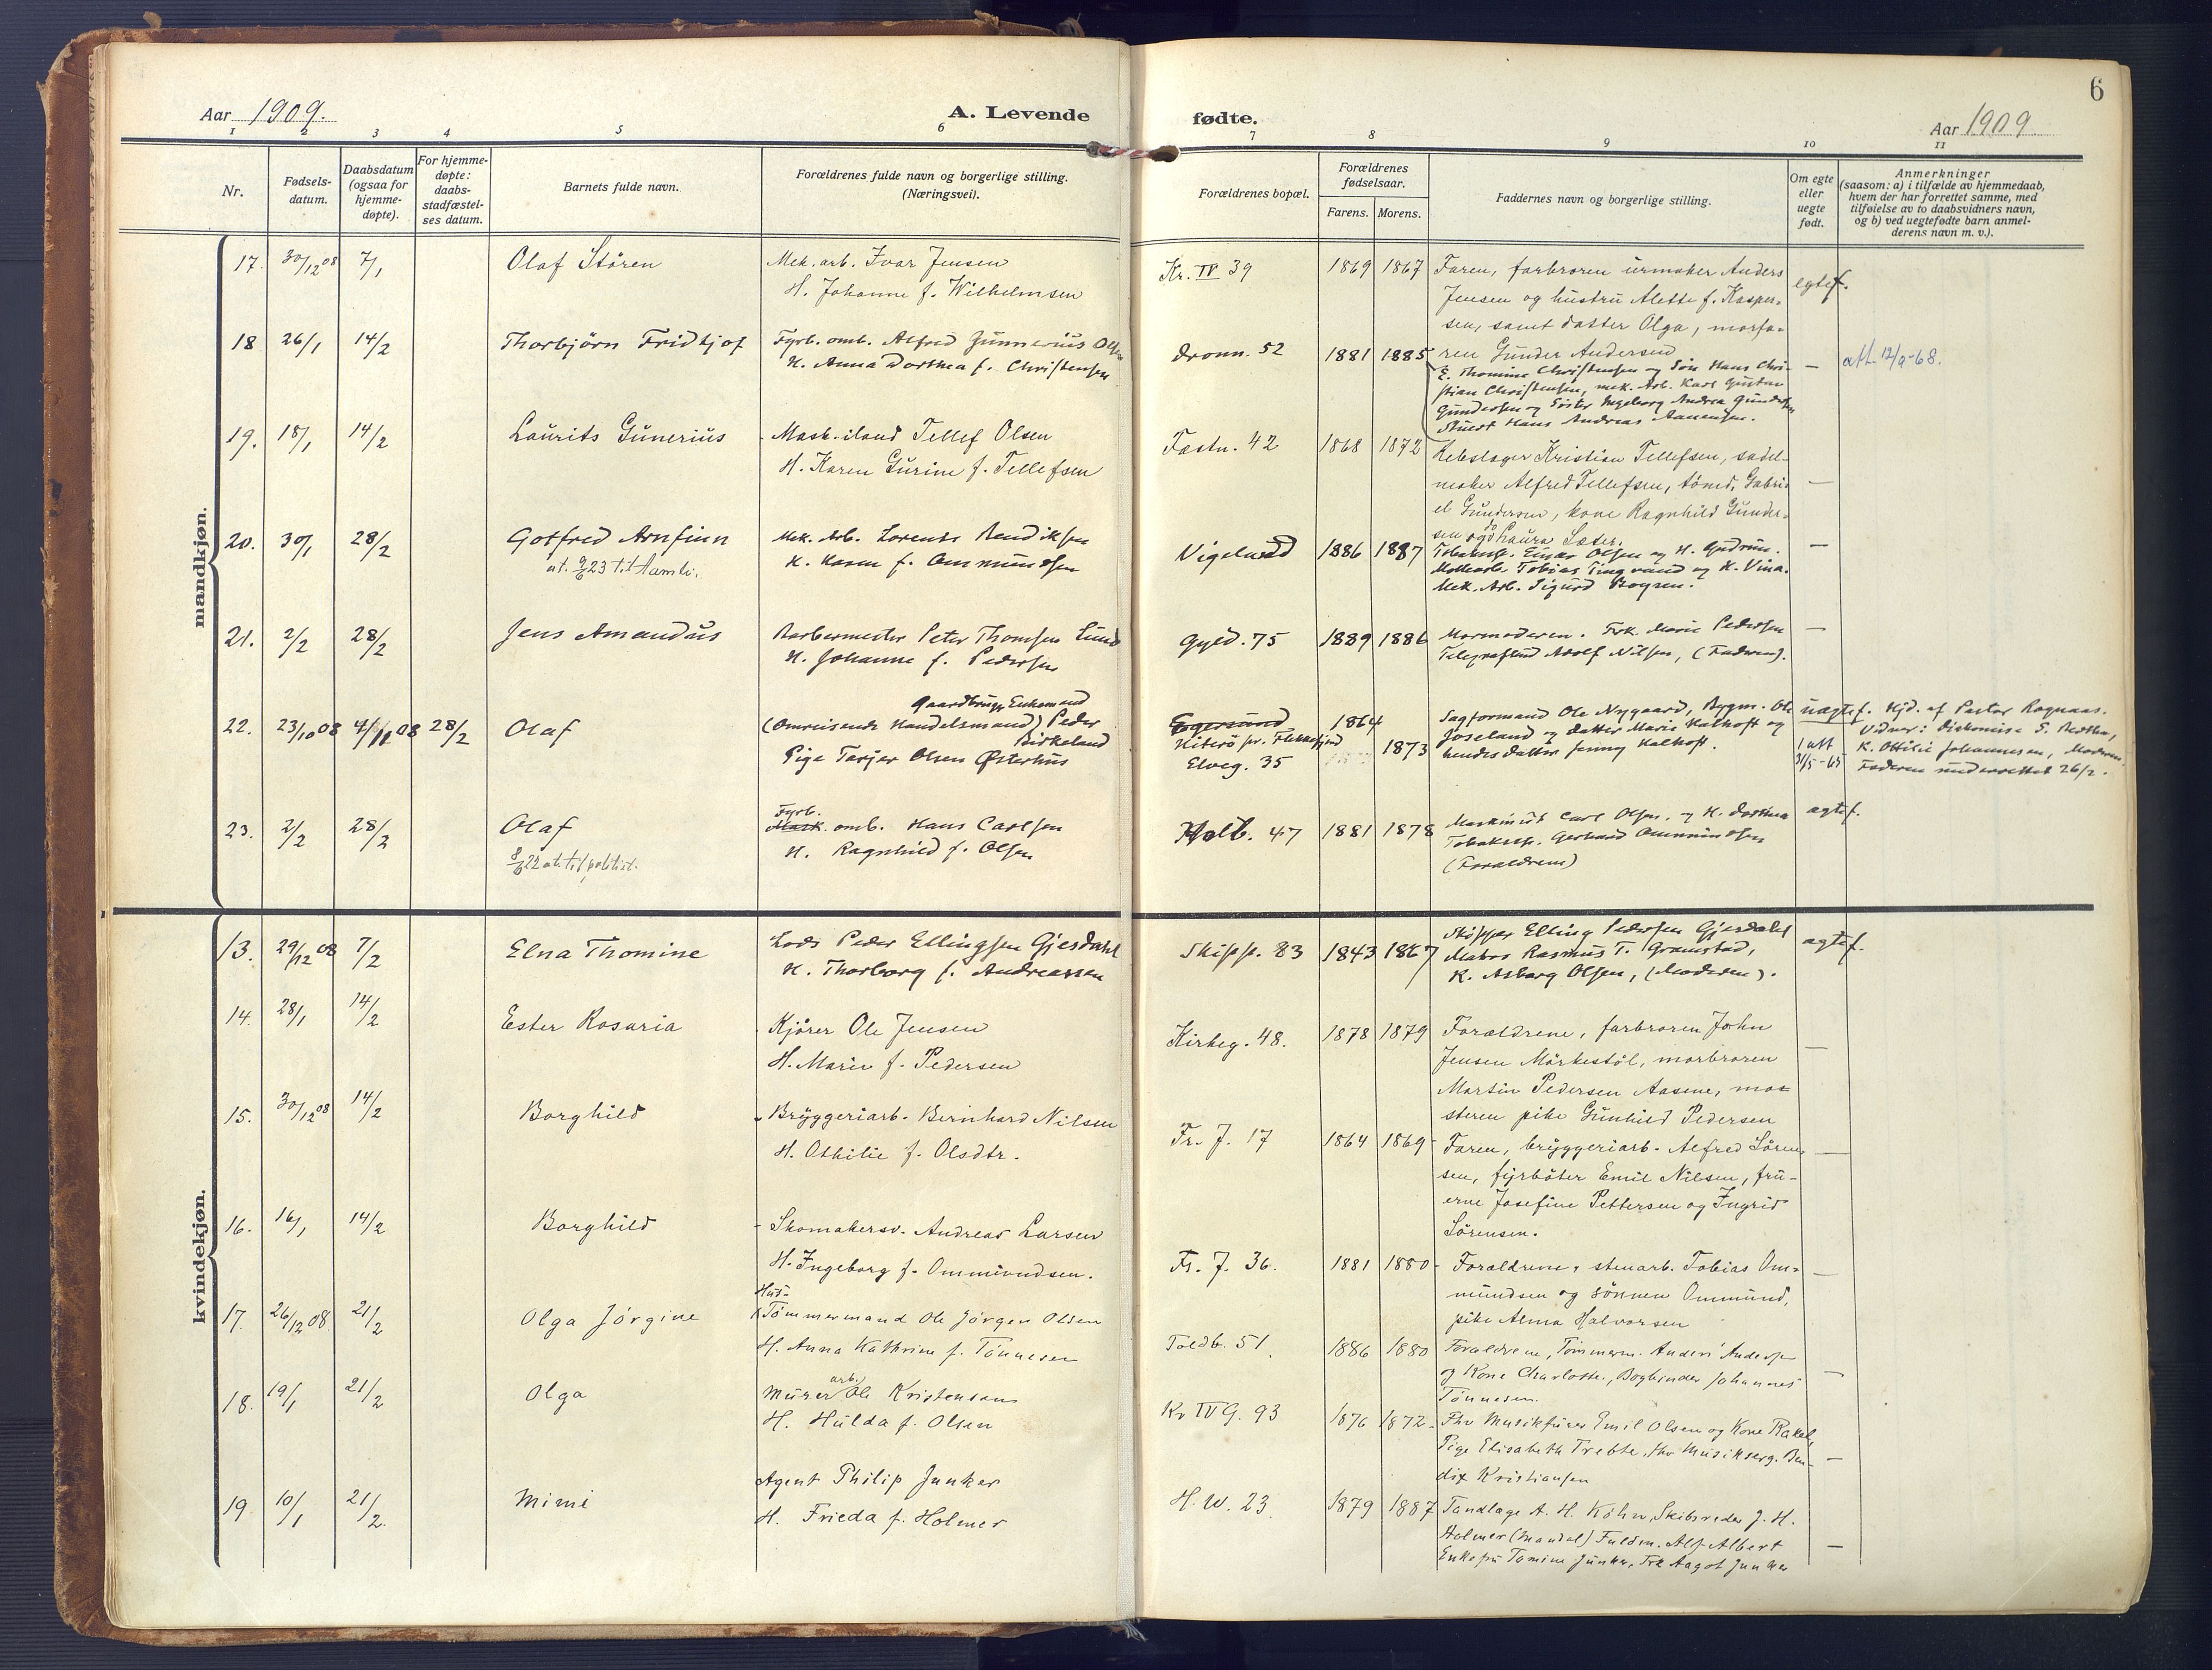 6
Aar 1909.
A. Levende
fødte.
Aar 1909
1 2 3 4 5 6 7 8 9 10 11
Nr.
Fødsels-
datum.
Daabsdatum
(ogsaa for
hjemme-
døpte).
For hjemme-
døpte:
daabs-
stadfæstel-
ses datum.
Barnets fulde navn.
Forældrenes fulde navn og borgerlige stilling.
(Næringsvei).
Forældrenes bopæl.
Forældrenes
fødselsaar.
Farens. Morens.
Faddernes navn og borgerlige stilling.
Om egte
eller
uegte
født.
Anmerkninger
(saasom: a) i tilfælde av hjemmedaab,
hvem der har forrettet samme, med
tilføielse av to daabsvidners navn,
og b) ved uegtefødte barn anmel-
derens navn m. v.).
mandkjøn.
17. 30/12 08 7/1 Olaf Stören
Mek. arb. Ivar Jensen
H. Johanne f. Wilhelmsen
Kr. IV 39 1869 1867
Faren, farbroren urmaker Anders
Jensen og hustru Alette f. Kasper-
sen, samt datter Olga, morfa-
ren Gunder Andersen
egtef.
18 26/1 14/2 Thorbjörn Fridtjof
Fyrb. omb. Alfred Gunnerius Olsen
H. Anna Dorthea f. Christensen
Dronn. 52 1881 1885
E. Thomine Christensen og Søn Hans Chri-
stian Christensen, mek. Arb. Karl Gustav
Gundersen og Søster Ingeborg Andrea Gundersen
Stuert Hans Andreas Aanensen.
— att. 12/9-68.
19. 18/1 14/2 Laurits Gunerius
Mask. Tellef Olsen
H. Karen Gurine f. Tellefsen
Fastn. 42 1868 1872
Rebslager Kristian Tellefsen, sadel-
maker Alfred Tellefsen, tömd. Gabri-
el Gundersen, kone Ragnhild Gunder-
sen og do Laura Sæter.
—
20. 30/1 28/2 Gotfred Arnfinn
at. 9/6 23 til Aamli.
Mek. Arb. Lorents Bendiksen
H. Karen f. Ommundsen
Vigeland 1886 1887
Tobaksp. Einar Olsen og H. Gudrun.
Møllearb. Tobias Tingvand og K. Vina.
Mek. Arb. Sigurd Boysen.
—
21. 2/2 28/2 Jens Amandus
Barbermester Peter Thomsen Lund
H. Johanne f. Pedersen
Gyld. 75 1889 1886
Mormoderen. Frk. Marie Pedersen
Telegrafbud Adolf Nilsen, (Faderen).
—
22. 23/10 08 4/11 08 28/2 Olaf
Gaardbruger Enkemand
(Omreisende Handelsmand) Peder
Birkeland
Pige Tarjer Olsen Østerhus
Egersund
Hiterø pr. Flekkefjord
Elveg. 35
1864 1873
Sagformand Ole Nygaard, Bygm. Ole
Jøseland og datter Marie Kalhoft og
hendes datter Jenny Kalhoft.
uægtef.
1 att
31/5-65
Hjd. af Pastor Rognaas.
Vidner: Diskonisse S. Redtha,
K. Ottilie Johannesen, Moderen.
Faderen underrettet 26/2.
23. 2/2 28/2 Olaf
8/6 22 at. til politiet.
Fyrb.
Mask. omb. Hans Carlsen
H. Ragnhild f. Olsen
Holb. 47 1881 1878
Maskinist Carl Olsen og H. Dorthea
Tobaksp. Gerhard Ommundsen
(Forældrene)
ægtef.
kvindekjøn.
13. 29/12 08 7/2 Elna Thomine
Lods Peder Ellingsen Gjesdahl
H. Thorborg f. Andreassen
Skipp. 83 1843 1867
Skipper Elling Pedersen Gjesdahl
Matros Rasmus T. Gramstad,
K. Asborg Olsen, (Moderen).
ægtef.
14. 28/1 14/2 Ester Rosaria
Kjører Ole Jensen
H. Marie f. Pedersen
Kirkeg. 48. 1878 1879
Forældrene, farbroren John
Jensen Mörkestöl, morbroren
Martin Pedersen Aasene, mo-
steren pike Gunhild Pedersen
—
15. 30/12 08 14/2 Borghild
Bryggeriarb. Bernhard Nilsen
H. Othilie f. Olsdtr.
Fr. J. 17 1864 1869
Faren, bryggeriarb. Alfred Sören-
sen, fyrböter Emil Nilsen, fru-
erne Josefine Pettersen og Ingrid
Sörensen.
—
16. 16/1 14/2 Borghild
Skomakersv. Andreas Larsen
H. Ingeborg f. Ommundsen.
Fr. J. 36. 1881 1880
Forældrene, stenarb. Tobias Om-
mundsen og sönnen Ommund,
pike Alma Halvorsen
—
17. 26/12 08. 21/2 Olga Jörgine
Hus-
Tömmermand Ole Jörgen Olsen
H. Anna Kathrine f. Tönnesen
Toldb. 51. 1886 1880
Forældrene, Tömmerm. Anders Anders
og Kone Charlotte, Bogbinder Johannes
Tönnesen.
—
18. 19/1 21/2 Olga
Murer arb. Ole Kristensen
H. Hulda f. Olsen
Kr IV G. 93 1876 1872
Fhv Musikfurer Emil Olsen og Kone Rakel,
Pige Elisabeth Trebte, fhv Musikserg. Ben-
dix Kristiansen
—
19. 10/1 21/2. Mimi
Agent Philip Junker
H. Frieda f. Holmer
H. W. 23. 1879 1887
Tandlæge A. H. Köhn, Skibsreder J. H.
Holmer (Mandal) Fuldm. Alf Albert
Enkefru Tomine Junker, Frk Aagot Junker
—